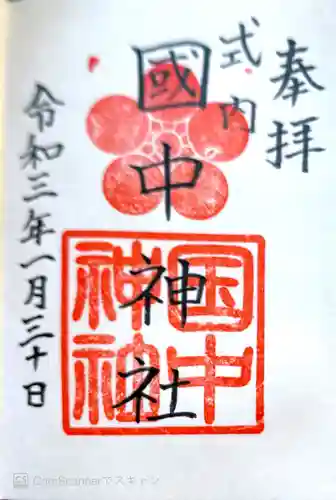 奉拝
式内
國中神社
国中
神社
令和三年一月三十日
CamScannerでスキャン